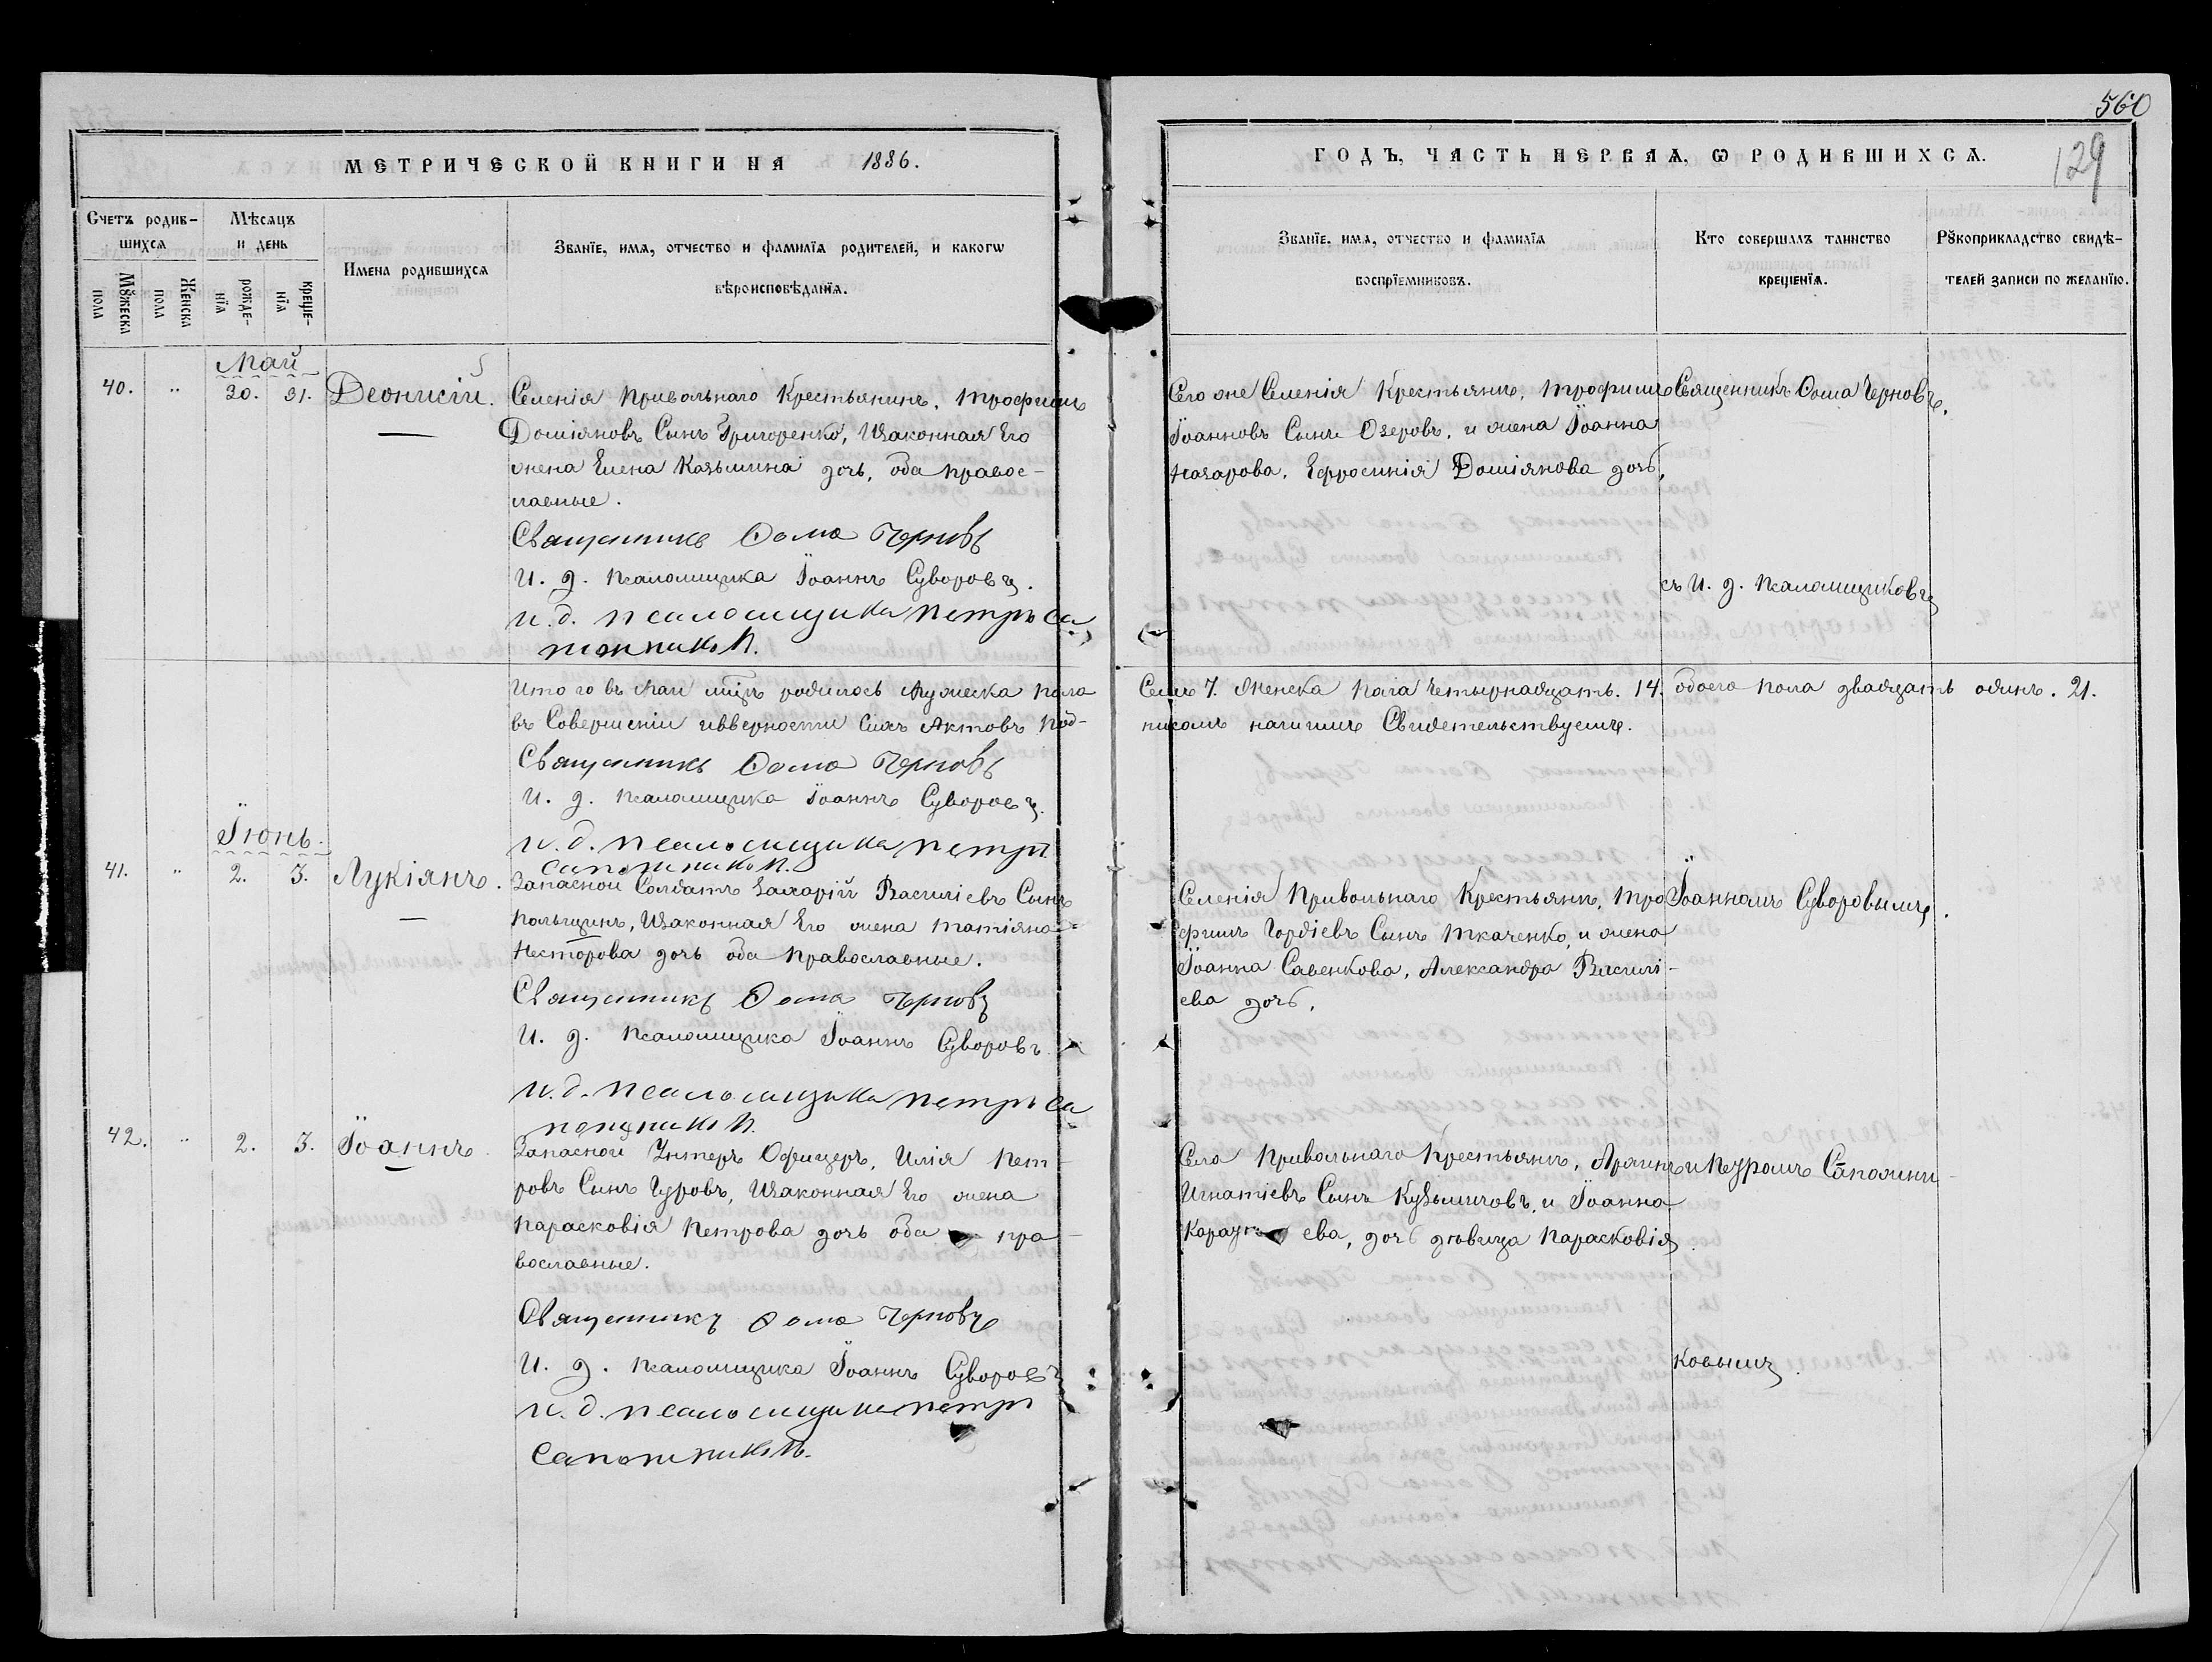 560
129
МЕТРИЧЕСКОЙ КНИГИ НА 1886.
ГОДЪ, ЧАСТЬ ПЕРВАѦ, Ѡ РОДИВШИХСѦ.
Счетъ родив-
шихсѧ
Мѣсѧцъ
и день
Имена родившихсѧ
Званїе, имѧ, отчество и фамилїѧ родителей, и какогѡ
вѣроисповѣданїѧ.
Мꙋжеска
пола
Женска
пола
рожде-
нїѧ
креще-
нїѧ
Званїе, имѧ, отчество и фамилїѧ
воспрїемниковъ.
Кто совершалъ таинство
крещенїѧ.
Рꙋкоприкладство свидѣ-
телей записи по желанїю.
Май
40. " 30. 31. Деонисій.
Селенія Привольнаго Крестьянинъ, Трофимъ
Доміяновъ Сынъ Григоренко, Изаконная Его
жена Елена Казьмина дочь, оба правос-
лавные.
Священникъ Ѳома Черновъ
И. д. псаломщика Іоаннъ Суворовъ.
и. д. псаломщика петръ Са
пожниковъ.
Сего же Селенія Крестьяне, Трофимъ
Іоанновъ Сынъ Озеровъ, и жена Іоанна
Назарова, Ефросинія Доміянова дочь,
Священникъ Ѳома Черновъ,
съ И. д. псаломщиковъ
Итого въ маи мцѣ родилось Мужеска пола
въ Совершеніи ивверности Сихъ Актовъ под-
Семь 7. Женска пола Четырнадцать. 14. обоего пола двадцать одинъ. 21.
писомъ нашимъ Свидетельствуемъ.
Священникъ Ѳома Черновъ
И. д. псаломщика Іоаннъ Суворовъ.
и. д. псаломщика петръ
сапожниковъ.
Іюнь.
41. " 2. 3. Лукіянъ.
Запасной Солдатъ Захарій Василіевъ Сынъ
Польщинъ, Изаконная Его жена Татіяна
Несторова дочь оба Православные.
Священникъ Ѳома Черновъ
И. д. псаломщика Іоаннъ Суворовъ.
и. д. псаломщика петръ Са
пожниковъ.
Селенія Привольнаго Крестьяне, Тро
фимъ Гордіевъ Сынъ Ткаченко, и жена
Іоанна Савенкова, Александра Василі-
ева дочь.
Іоанномъ Суворовымъ.
42. " 2. 3. Іоаннъ.
Запасной Унтеръ Офицеръ, Илія Пет-
ровъ Сынъ Гуровъ, Изаконная Его жена
Парасковія Петрова дочь оба пра-
вославные.
Священникъ Ѳома Черновъ
И. д. псаломщика Іоаннъ Суворовъ
и. д. псаломщика петръ
сапожниковъ.
Села Привольнаго Крестьяне,
Игнатіевъ Сынъ Кузьмичовъ, и Іоанна
ева, дочь дѣвица Парасковія.
и Петромъ Сапожни-
ковымъ.